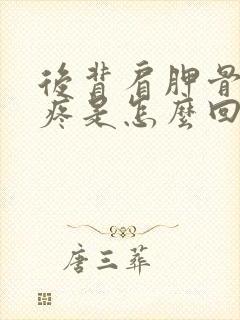 後背肩胛骨
疼是怎麼回
唐三葬